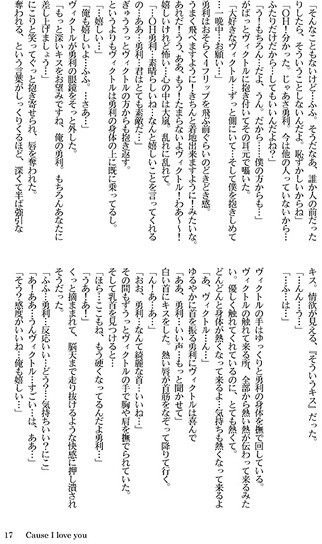 「そんなこともないけど…ふふ、そうだなあ、誰か人の前だった
りしたら、そういうことしないんだよ。恥ずかしいからね」
「OH！分かった。じゃあさ勇利、今は他の人っていないから…
ふたりだけだから…してもいいんだよね？」
「う！もちろん…だよ。うん。だから……僕の方からも…」
がばっとヴィクトルに抱き付いてその耳元で囁いた。
「大好きなヴィクトル…ずっと側にいて…そして僕を抱きしめて
…一晩中…お願い…」
勇利はおそらく4フリップを飛ぶ前ぐらいのどきどき感。
うまく飛べますように！きちんと着地出来ますように！みたいな。
これだ！うああ、もう！たまらないよヴィクトル！わあ～～！
嬉しいけれど怖い…心の中は大風、乱れに乱れて。
「…OH勇利…素晴らしいね…なんと嬉しいことを言ってくれる
のああ…勇利…君はとても素敵だ…」
ぎゅうっとヴィクトルの方からも抱き返す。
というよりもヴィクトルは勇利の身体の上に既に乗ってるし。
「…嬉しい…」
「俺も嬉しいよ…ふふ…さあ…」
ヴィクトルが勇利の眼鏡をそっと外した。
「もっと深いキスをお望みですね。俺の勇利。もちろんあなたに
差し上げましょう…」
にこりと笑ってぐっと抱き寄せられ、唇を奪われた。
奪われる、という言葉がしっくりくるほど、深くて半ば強引な
キス。情欲が見える、『そういうキス』だった。
「…んん…う…」
「…ふ…は…」
ヴィクトルの手はゆっくりと勇利の身体を撫で回している。
ヴィクトルの触れて来る所、全部から熱い熱が伝わって来るみた
い。優しく触れてくれているのに、とても熱くて。
どんどんと身体が熱くなって来るよ…気持ちも熱くなって来るよ
「あ、ヴィクトル…ん…」
ゆるやかに首を振る勇利にヴィクトルは喜んで
「ああ、勇利…いい声…もっと聞かせて」
白い首にキスをした。熱い唇が首筋をなぞって降りて行く。
「ん！あ…あ…」
「おお、勇利…なんて綺麗な首…いいね…」
その間もずうっとヴィクトルの手で胸や肩を撫でられていた。
そして乳首を見つけると
「ほら…ここもね、もう硬くなってるんだよ勇利…」
「うあ！あ！」
くっと摘まれて、脳天まで走り抜けるような快感に押し潰され
そうだった。
「ふふ…勇利…反応いい…どう？…気持ちいい？ここ」
「あ！ああ…うんヴィクトル…すごい…は、ああ…」
「そう？感度がいいね…俺も嬉しい…」
17 Cause I love you